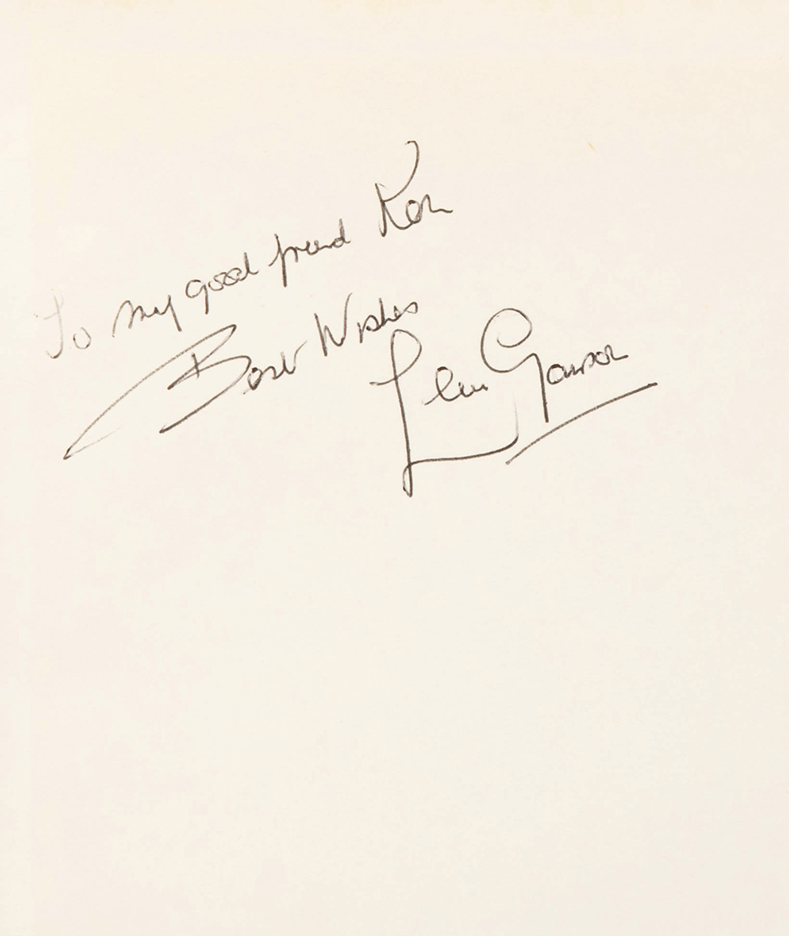 To my good friend Ken
Best Wishes
Lewis Ganson